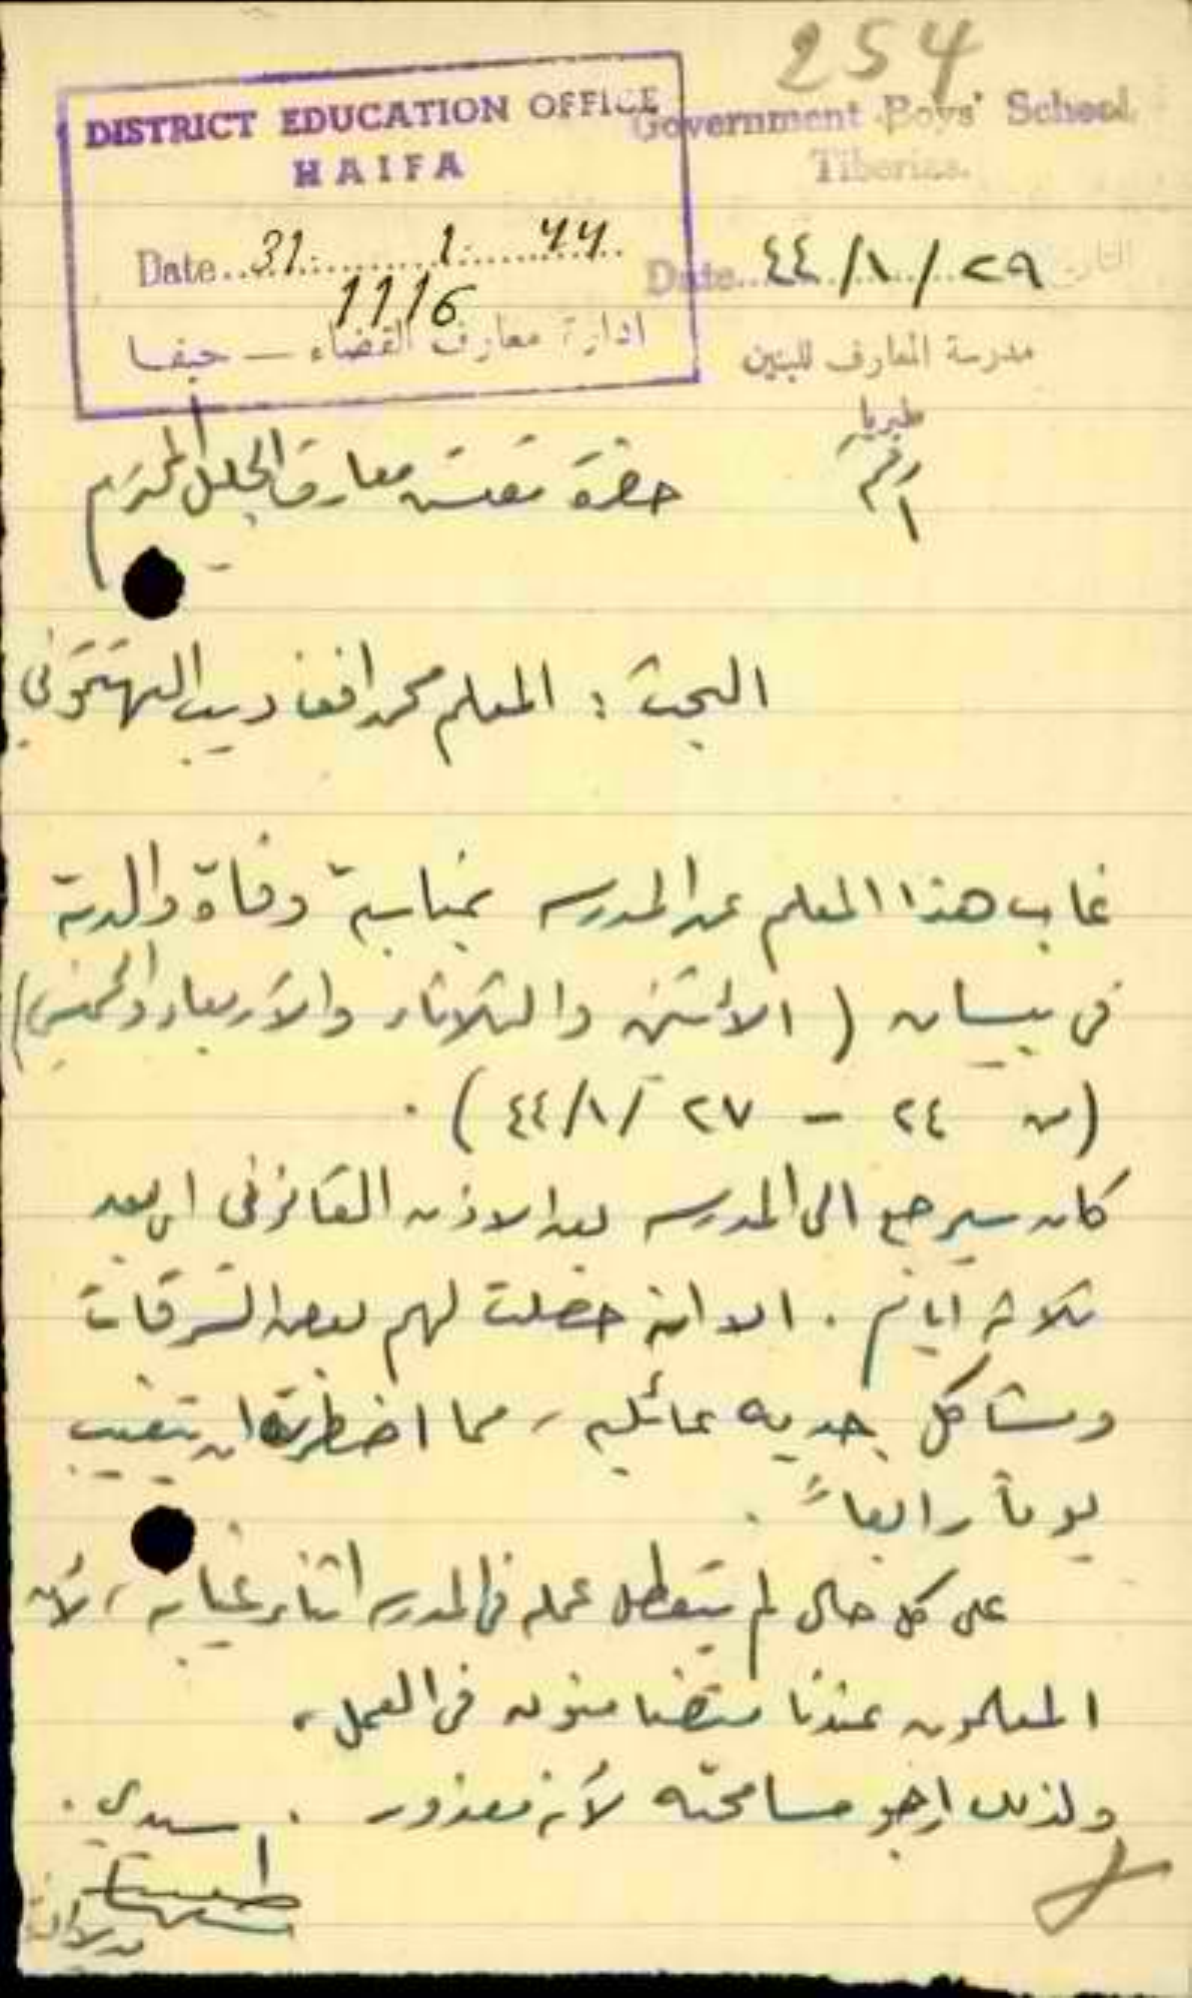 254
DISTRICT EDUCATION OFFICE
HAIFA
Date 31. 1. 44
1116
ادارة معارف القضاء — حيفا
Government Boys' School,
Tiberias.
Date ٢٩ / ١ / ٤٤ التاريخ
مدرسة المعارف للبنين
طبريا
رقم
حضرة مفتش معارف الجليل المحترم
البحث : المعلم محمد افندي ديب
غاب هذا المعلم عن المدرسه بمناسبة وفاة والدته
في بيسان (الاثنين والثلاثاء والاربعاء والخميس)
(من ٢٤ – ٢٧ /١/٤٤) .
كان سيرجع الى المدرسه بعد الاذن القانوني اي بعد
ثلاثة ايام . الا انه حصلت لهم بعض السرقات
ومشاكل جديه عائليه ، مما اضطرته ان يتغيب
يوماً رابعاً .
على كل حال لم يتعطل عمله في المدرسه اثناء غيابه ، لأن
المعلمون عندنا متضامنون في العمل .
ولذلك ارجو مسامحته لأنه معذور . سيدي .